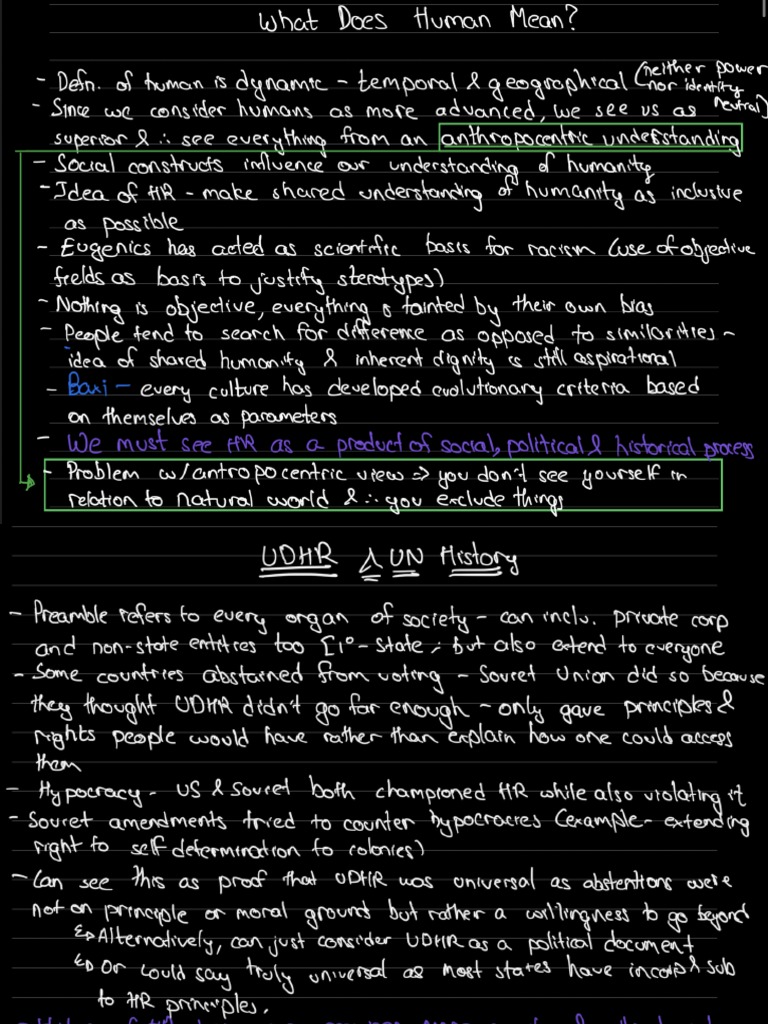 What Does Human Mean?
- Defn. of human is dynamic - temporal & geographical (neither power nor identity neutral)
- Since we consider humans as more advanced, we see us as
superior & ∴ see everything from an anthropocentric understanding
- Social constructs influence our understanding of humanity
- Idea of HR - make shared understanding of humanity as inclusive
as possible
- Eugenics has acted as scientific basis for racism (use of objective
fields as basis to justify sterotypes)
- Nothing is objective, everything is tainted by their own bias
- People tend to search for difference as opposed to similarities -
idea of shared humanity & inherent dignity is still aspirational
- Baxi - every culture has developed evolutionary criteria based
on themselves as parameters
- We must see HR as a product of social, political & historical process
- Problem w/antropocentric view => you don't see yourself in
relation to natural world & ∴ you exclude things
UDHR & UN History
- Preamble refers to every organ of society - can inclu. private corp
and non-state entities too [1° - State ; but also extend to everyone
- Some countries abstained from voting - Soviet Union did so because
they thought UDHR didn't go far enough - only gave principles &
rights people would have rather than explain how one could access
them
- Hypocracy - US & Soviet both championed HR while also violating it
- Soviet amendments tried to counter hypocracies (example - extending
right to self determination to colonies)
- Can see this as proof that UDHR was universal as abstentions were
not on principle or moral ground but rather a willingness to go beyond
↳ Alternatively, can just consider UDHR as a political document
↳ Or could say truly universal as most states have incorp & sub
to HR principles.